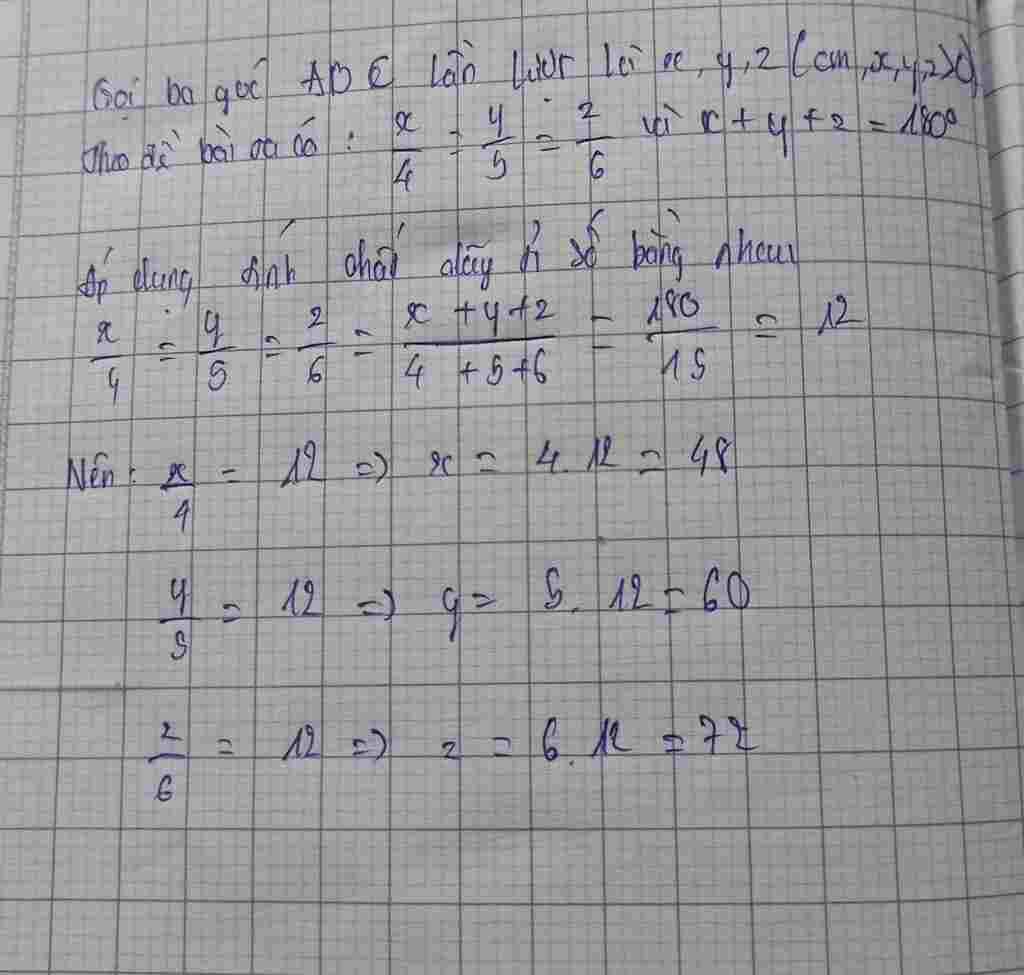 Gọi ba góc A B C lần lượt là x, y, z (cm, x, y, z > 0)
Theo đề bài ta có : x/4 = y/5 = z/6 và x + y + z = 180°
Áp dụng tính chất dãy tỉ số bằng nhau
x/4 = y/5 = z/6 = x + y + z / 4 + 5 + 6 = 180/15 = 12
Nên : x/4 = 12 => x = 4. 12 = 48
y/5 = 12 => y = 5. 12 = 60
z/6 = 12 => z = 6. 12 = 72